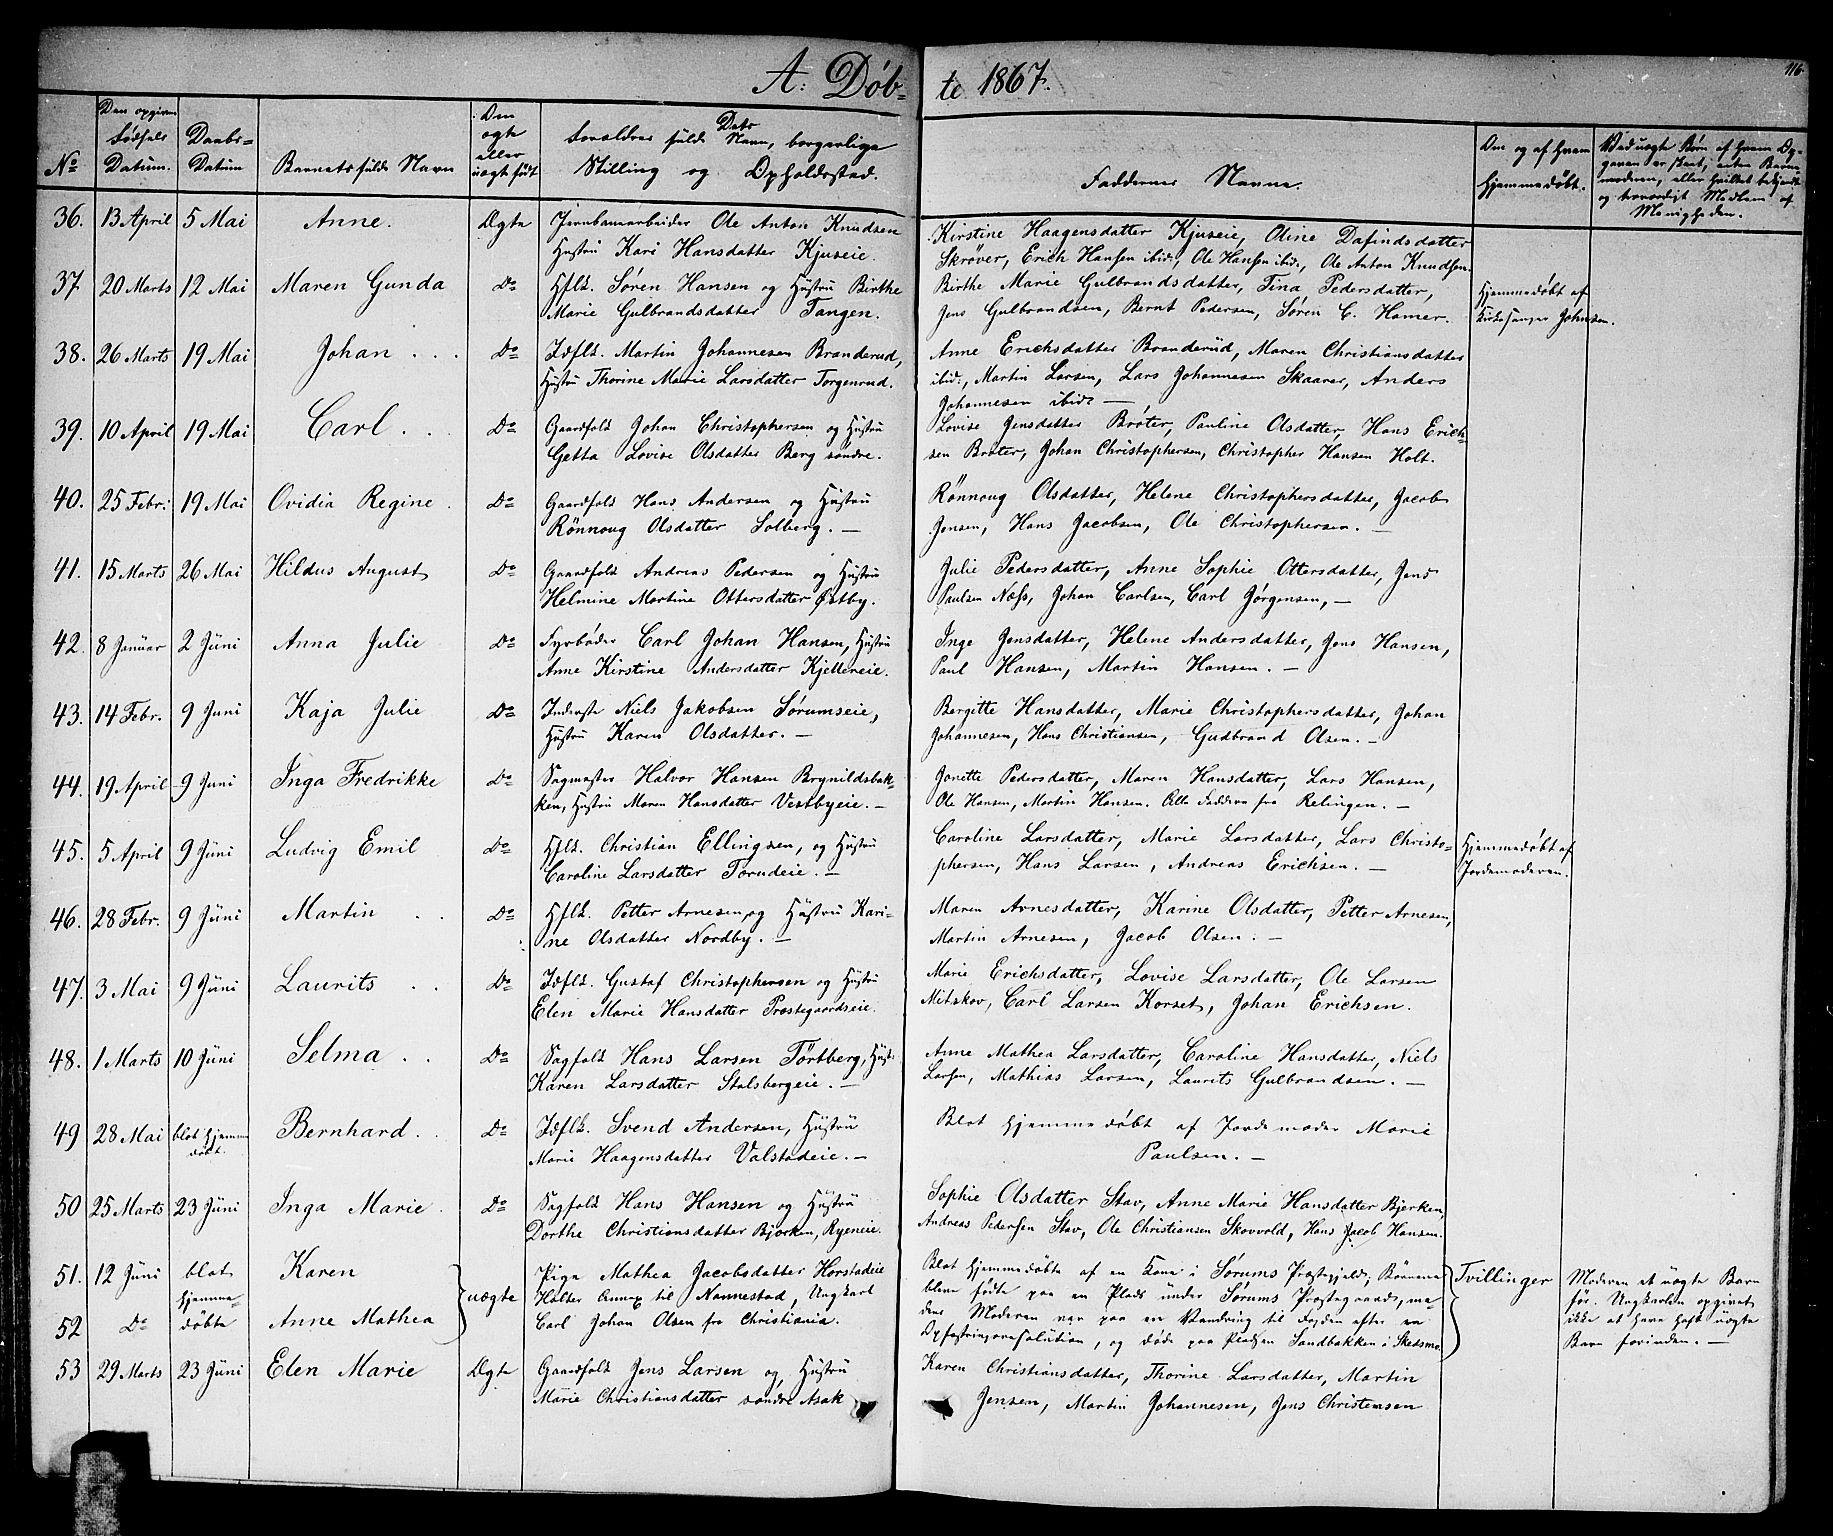 A: Døb- te 1867. 116
No Den opgivne Fødsels Datum. Daabs-Datum Barnets fulde Navn Om ægte eller uægte født Forældres fulde Navn, Dato borgerlige Stilling og Opholdssted. Faddernes Navne. Om og af Hvem Hjemmedøbt. Ved uægte Børn af Hvem Opgaven er skeet, enten Barnemoderen, eller hvilket bekjendt og troværdigt Medlem af Menigheden.
36. 13 April 5 Mai Anne. Ægte Jernbanearbeider Ole Anton Knudsen
Hustru Kari Hansdatter Kjuseie.
Kirstine Haagensdatter Kjuseie, Oline Dafindsdatter
Skrøver, Erich Hansen ibid:, Ole Hansen ibid:, Ole Anton Knudsen.
37. 20 Marts 12 Mai Maren Gunda Do Hflk. Søren Hansen og Hustru Birthe
Marie Gulbrandsdatter Tangen.
Birthe Marie Gulbrandsdatter, Tina Pedersdatter,
Jens Gulbrandsen, Bernt Pedersen, Søren C. Hamer.
Hjemmedøbt af
Kirkesanger Johnsen.
38. 26 Marts 19 Mai Johan Do Idflk. Martin Johannesen Branderud,
Hustru Thorine Marie Larsdatter Torgenrud.
Anne Erichsdatter Branderud, Maren Christiansdatter
ibid:, Martin Larsen, Lars Johannesen Skaarer, Anders
Johannesen ibid: —
39. 10 April 19 Mai Carl Do Gaardfolk Johan Christophersen og Hustru
Getta Lovise Olsdatter Berg søndre.
Lovise Jensdatter Brøter, Pauline Olsdatter, Hans Erich-
sen Brøter, Johan Christophersen, Christopher Hansen Holt.
40. 25 Febr: 19 Mai Ovidia Regine Do Gaardfolk Hans Andersen og Hustru
Rønnoug Olsdatter Solberg. —
Rønnoug Olsdatter, Helene Christophersdatter, Jacob
Jensen, Hans Jacobsen, Ole Christophersen. —
41. 15 Marts 26 Mai Hildus August Do Gaardfolk Andreas Pedersen og Hustru
Helmine Martine Ottersdatter Østby.
Julie Pedersdatter, Anne Sophie Ottersdatter, Jens
Paulsen Næss, Johan Carlsen, Carl Jørgensen, —
42. 8 Januar 2 Juni Anna Julie Do Fyrbøder Carl Johan Hansen, Hustru
Anne Kirstine Andersdatter Kjellereie.
Inge Jensdatter, Helene Andersdatter, Jens Hansen,
Paul Hansen, Martin Hansen. —
43. 14 Febr. 9 Juni Kaja Julie Do Inderste Niels Jakobsen Sørumseie,
Hustru Karen Olsdatter. —
Bergitte Hansdatter, Marie Christophersdatter, Johan
Johannesen, Hans Christiansen, Gudbrand Olsen. —
44. 19 April 9 Juni Inga Fredrikke Do Sagmester Halvor Hansen Brynildsbak-
ken, Hustru Maren Hansdatter Vestbyeie. —
Jonette Pedersdatter, Maren Hansdatter, Lars Hansen,
Ole Hansen, Martin Hansen. Alle Faddere fra Relingen. —
45. 5 April 9 Juni Ludvig Emil Do Hflk. Christian Ellingsen, og Hustru
Caroline Larsdatter Forudeie. —
Caroline Larsdatter, Marie Larsdatter, Lars Christo-
phersen, Hans Larsen, Andreas Erichsen. —
Hjemmedøbt af
Jordemoderen.
46. 28 Febr. 9 Juni Martin Do Hflk. Petter Arnesen, og Hustru Kari-
ne Olsdatter Nordby. —
Maren Arnesdatter, Karine Olsdatter, Petter Arnesen,
Martin Arnesen, Jacob Olsen. —
47. 3 Mai 9 Juni Laurits Do Idflk. Gustaf Christophersen og Hustru
Elen Marie Hansdatter Præstegaardseie.
Marie Erichsdatter, Lovise Larsdatter, Ole Larsen
Mitskov, Carl Larsen Korset, Johan Erichsen.
48. 1 Marts 10 Juni Selma Do Sagfolk Hans Larsen Tørtberg, Hust:
Karen Larsdatter Stalsbergeie. —
Anne Mathea Larsdatter, Caroline Hansdatter, Niels
Larsen, Mathias Larsen, Laurits Gulbrandsen. —
49 28 Mai blot Hjemme
døbt. Bernhard. Do Idflk. Svend Andersen, Hustru
Marie Haagensdatter Valstadeie. —
Blot Hjemmedøbt af Jordemoder Marie
Paulsen. —
50 25 Marts 23 Juni Inga Marie. Do Sagfolk Hans Hansen og Hustru
Dorthe Christiansdatter Bjørken, Ryeneie.
Sophie Olsdatter Stav, Anne Marie Hansdatter Bjerken,
Andreas Pedersen Stav, Ole Christiansen Skovvold, Hans Jacob Hansen.
51. 12 Juni blot Karen
52 Do Hjemme-
døbte Anne Mathea uægte Pige Mathea Jacobsdatter Horstadeie
Holter Annex til Nannestad, Ungkarl
Carl Johan Olsen fra Christiania.
Blot Hjemmedøbte af en Kone i Sørums Præstegjeld; Børnene
bleve fødte paa en Plads under Sørums Præstegaard, me-
dens Moderen var paa en Vandring til Fogden efter en
Opfostringsresolution, og døde paa Pladsen Sandbakken i Skedsmo.
Tvillinger
Moderen et uægte Barn
før. Ungkarlen opgivet
ikke at have havt uægte
Barn forinden. —
53 29 Marts 23 Juni Elen Marie Ægte Gaardfolk Jens Larsen og Hustru
Marie Christiansdatter søndre Asak
Karen Christiansdatter, Thorine Larsdatter, Martin
Jensen, Martin Johannesen, Jens Christensen